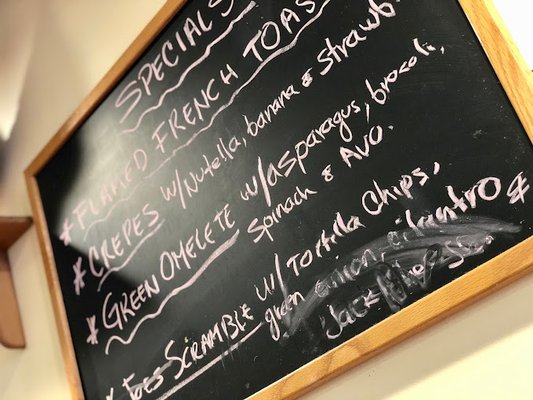 SPECIALS
* FLAKED FRENCH TOAST
* CREPES W/ Nutella, banana & strawb
* GREEN OMELETE W/ asparagus, brocoli,
spinach & AVO.
* JOES SCRAMBLE W/ TORTILLA CHIPS,
green onion, cilantro *
Jack